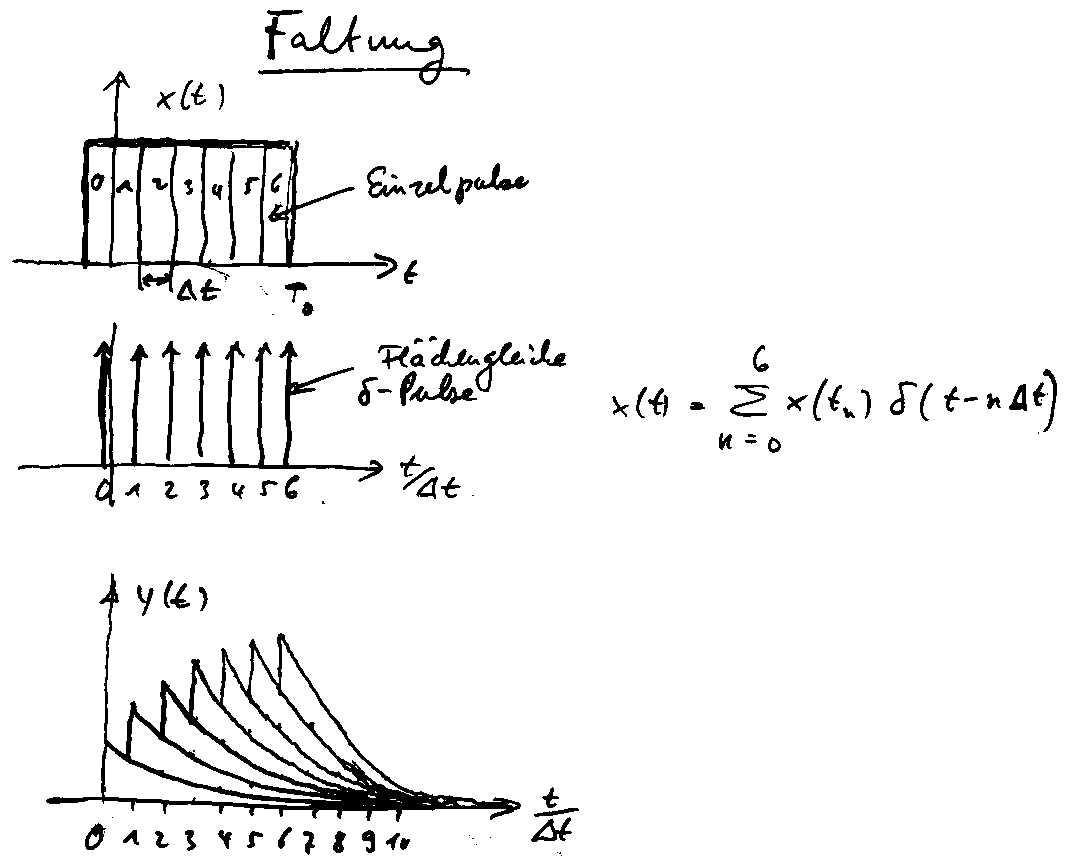 Faltung
x(t)
0 1 2 3 4 5 6
Einzelpulse
t
Δt
T₀
Flächengleiche
δ-Pulse
0 1 2 3 4 5 6
t/Δt
6
x(t) = Σ x(tₙ) δ(t-nΔt)
n=0
y(t)
0 1 2 3 4 5 6 7 8 9 10
t/Δt